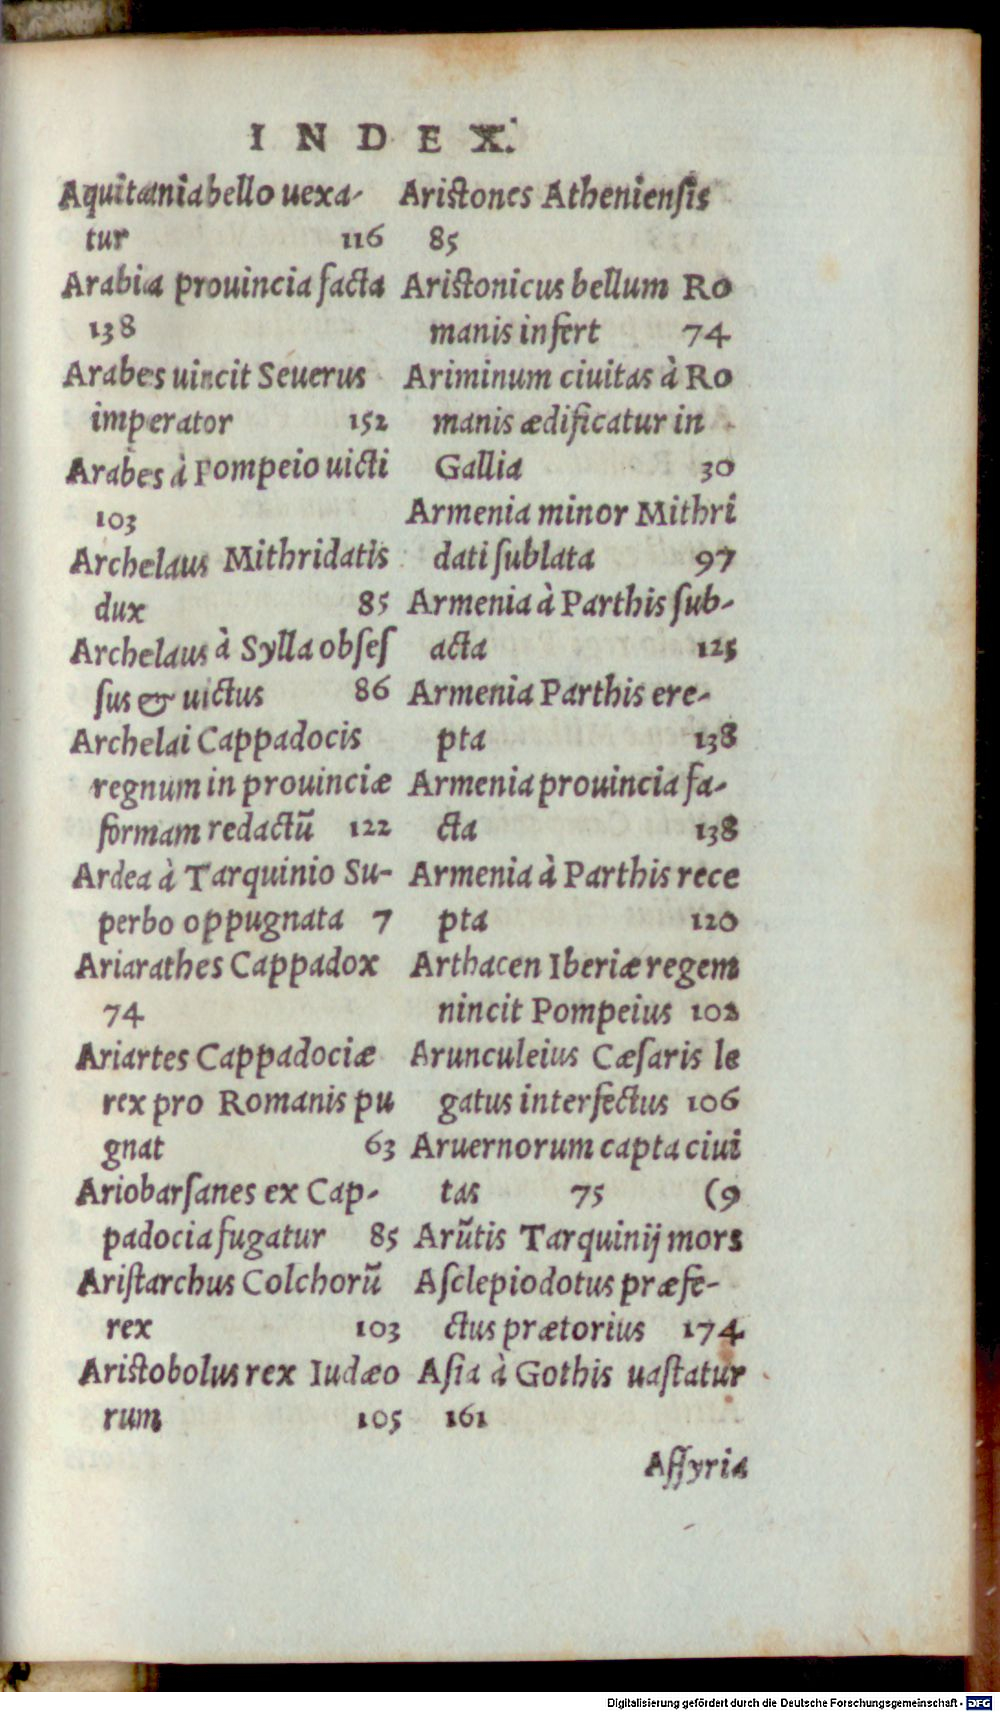 INDEX.
Aquitania bello uexa-
tur 116
Arabia prouincia facta
138
Arabes uincit Seuerus
imperator 152
Arabes à Pompeio uicti
103
Archelaus Mithridatis
dux 85
Archelaus à Sylla obſeſ
ſus & uictus 86
Archelai Cappadocis
regnum in prouinciæ
formam redactū 122
Ardea à Tarquinio Su-
perbo oppugnata 7
Ariarathes Cappadox
74
Ariartes Cappadociæ
rex pro Romanis pu
gnat 63
Ariobarſanes ex Cap-
padocia fugatur 85
Ariſtarchus Colchorū
rex 103
Ariſtobolus rex Iudæo
rum 105
Ariſtones Athenienſis
85
Ariſtonicus bellum Ro
manis infert 74
Ariminum ciuitas à Ro
manis ædificatur in
Gallia 30
Armenia minor Mithri
dati ſublata 97
Armenia à Parthis ſub-
acta 125
Armenia Parthis ere-
pta 138
Armenia prouincia fa-
cta 138
Armenia à Parthis rece
pta 120
Arthacen Iberiæ regem
nincit Pompeius 102
Arunculeius Cæſaris le
gatus interfectus 106
Aruernorum capta ciui
tas 75 (9
Arūtis Tarquinij mors
Aſclepiodotus præfe-
ctus prætorius 174
Aſia à Gothis uaſtatur
161
Aſſyria
Digitalisierung gefördert durch die Deutsche Forschungsgemeinschaft - DFG